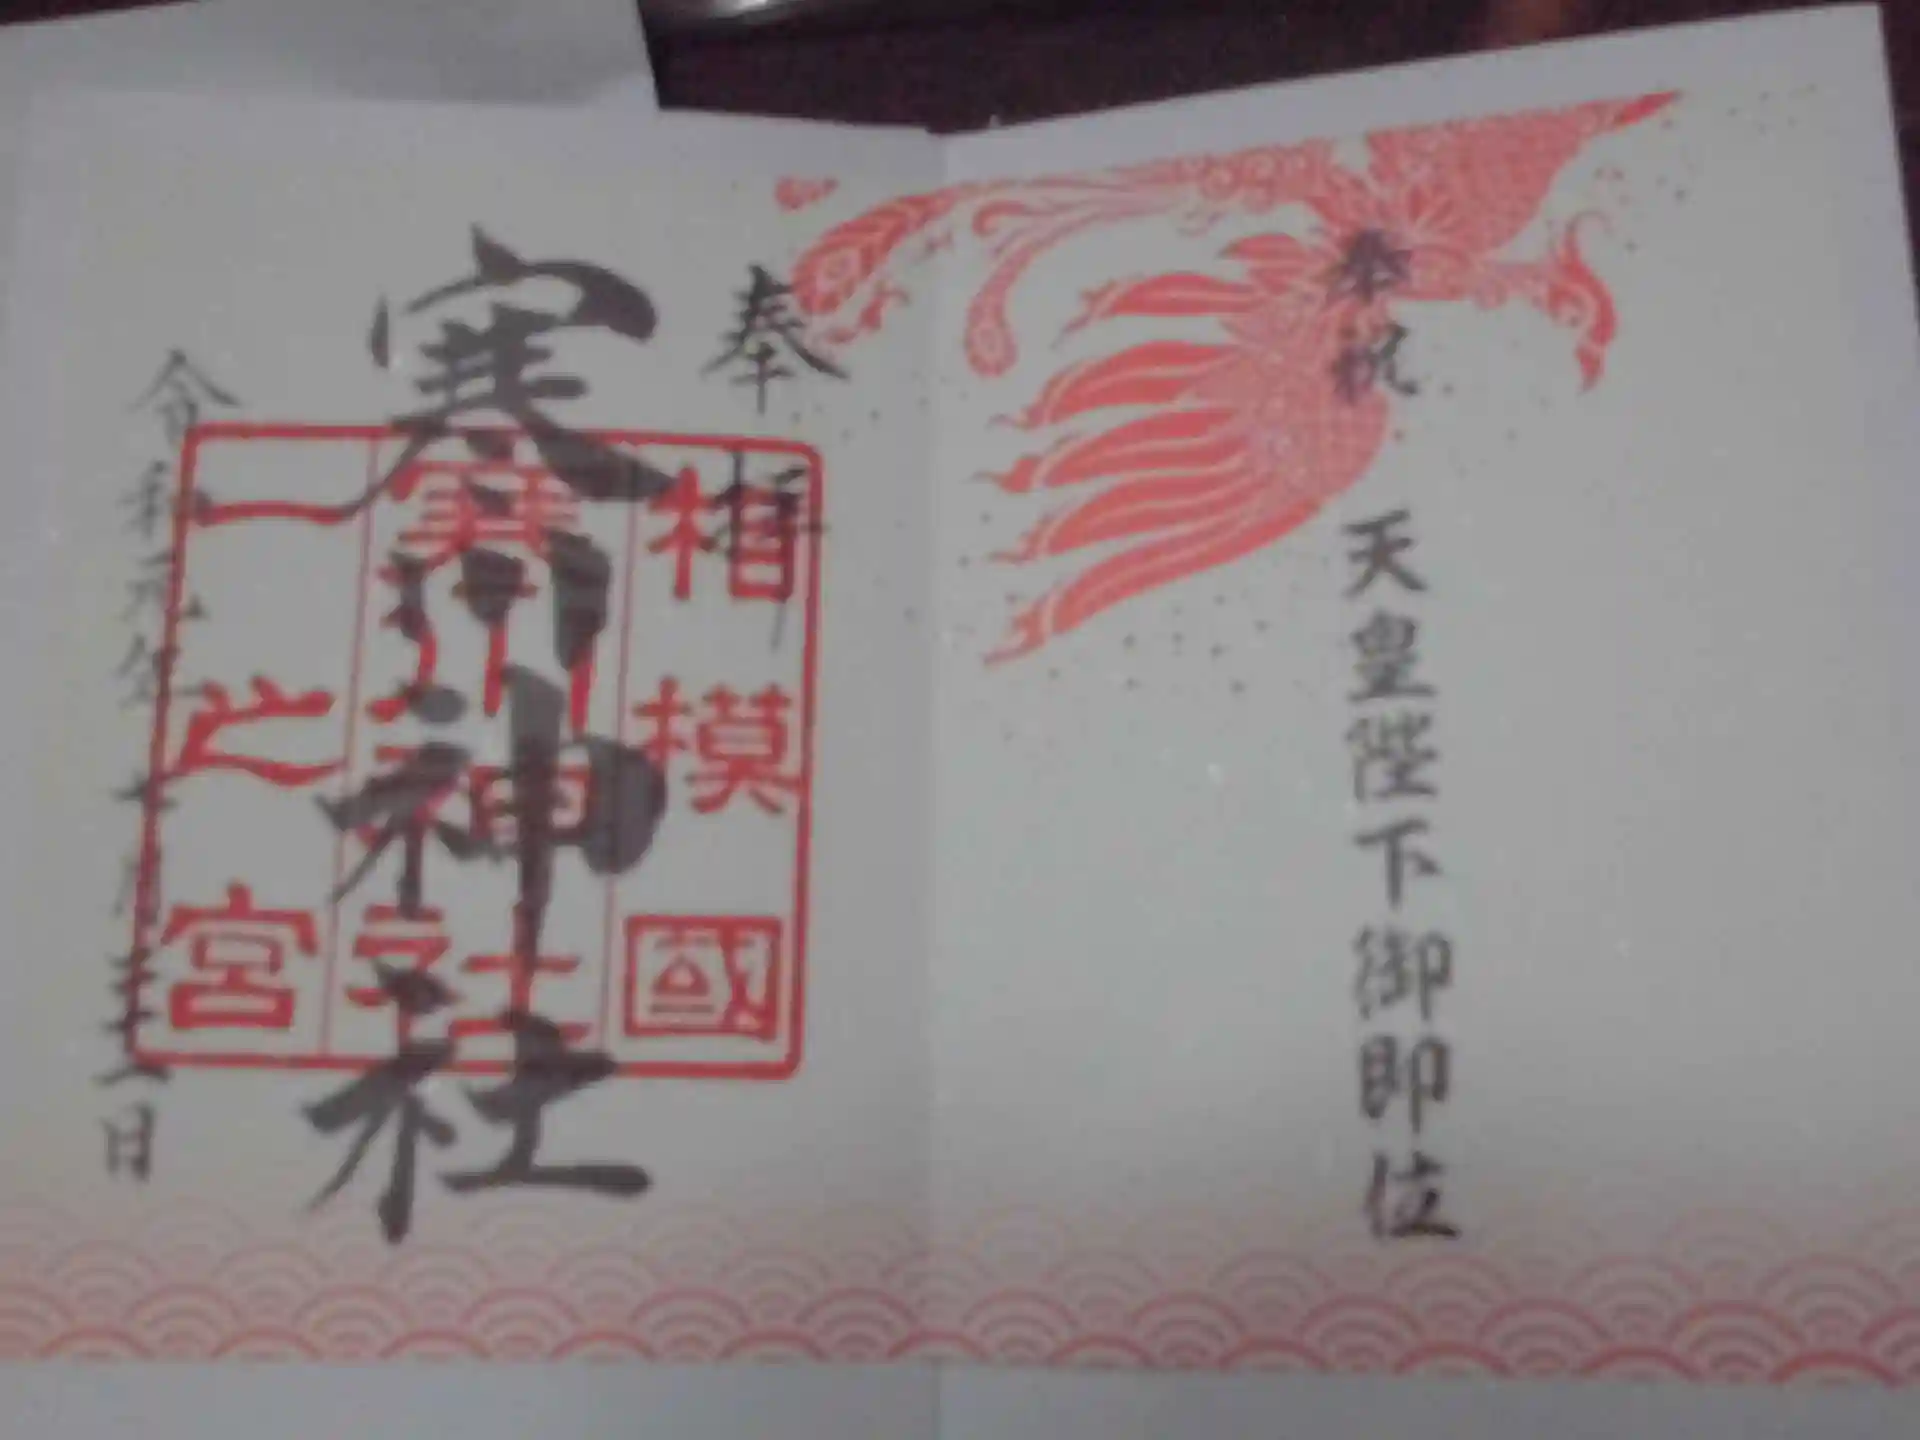 奉祝
天皇陛下御即位
奉拝
寒川神社
相模國
寒川神社
一之宮
令和元年十月二十二日